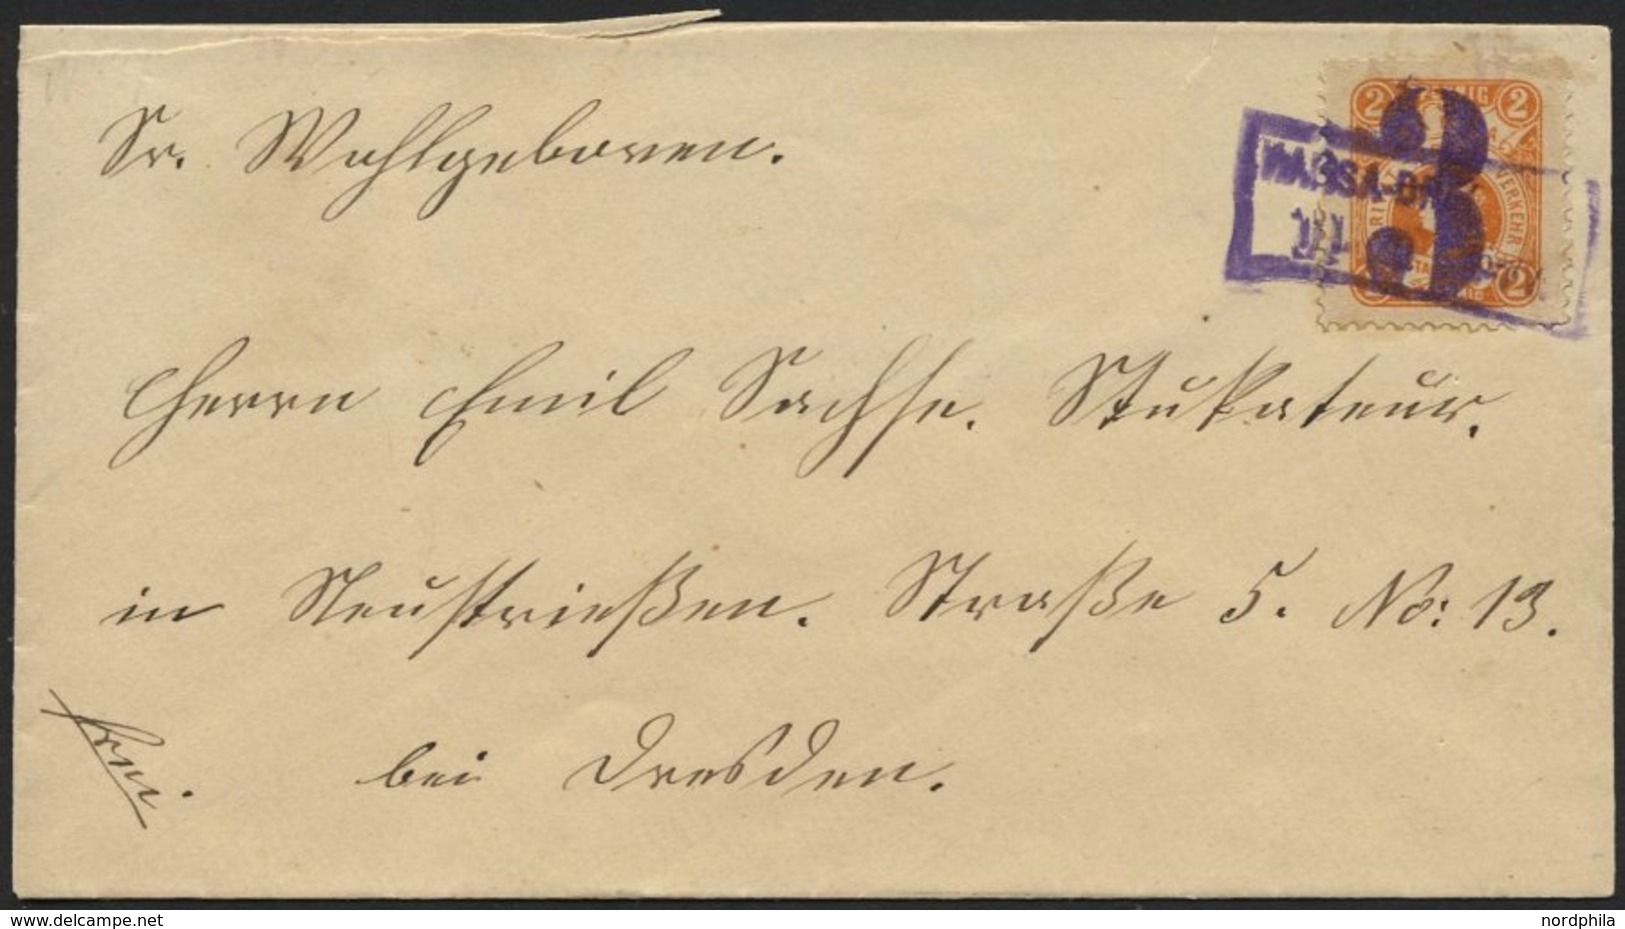 Sr. Wohlgeboren.
Herrn Emil Sachse. Stukateur.
in Neustrießen. Straße 5. No: 13.
bei Dresden.
2 2
2
HANSA-DR
3
VERKEHR
delcampe.net
nordphila